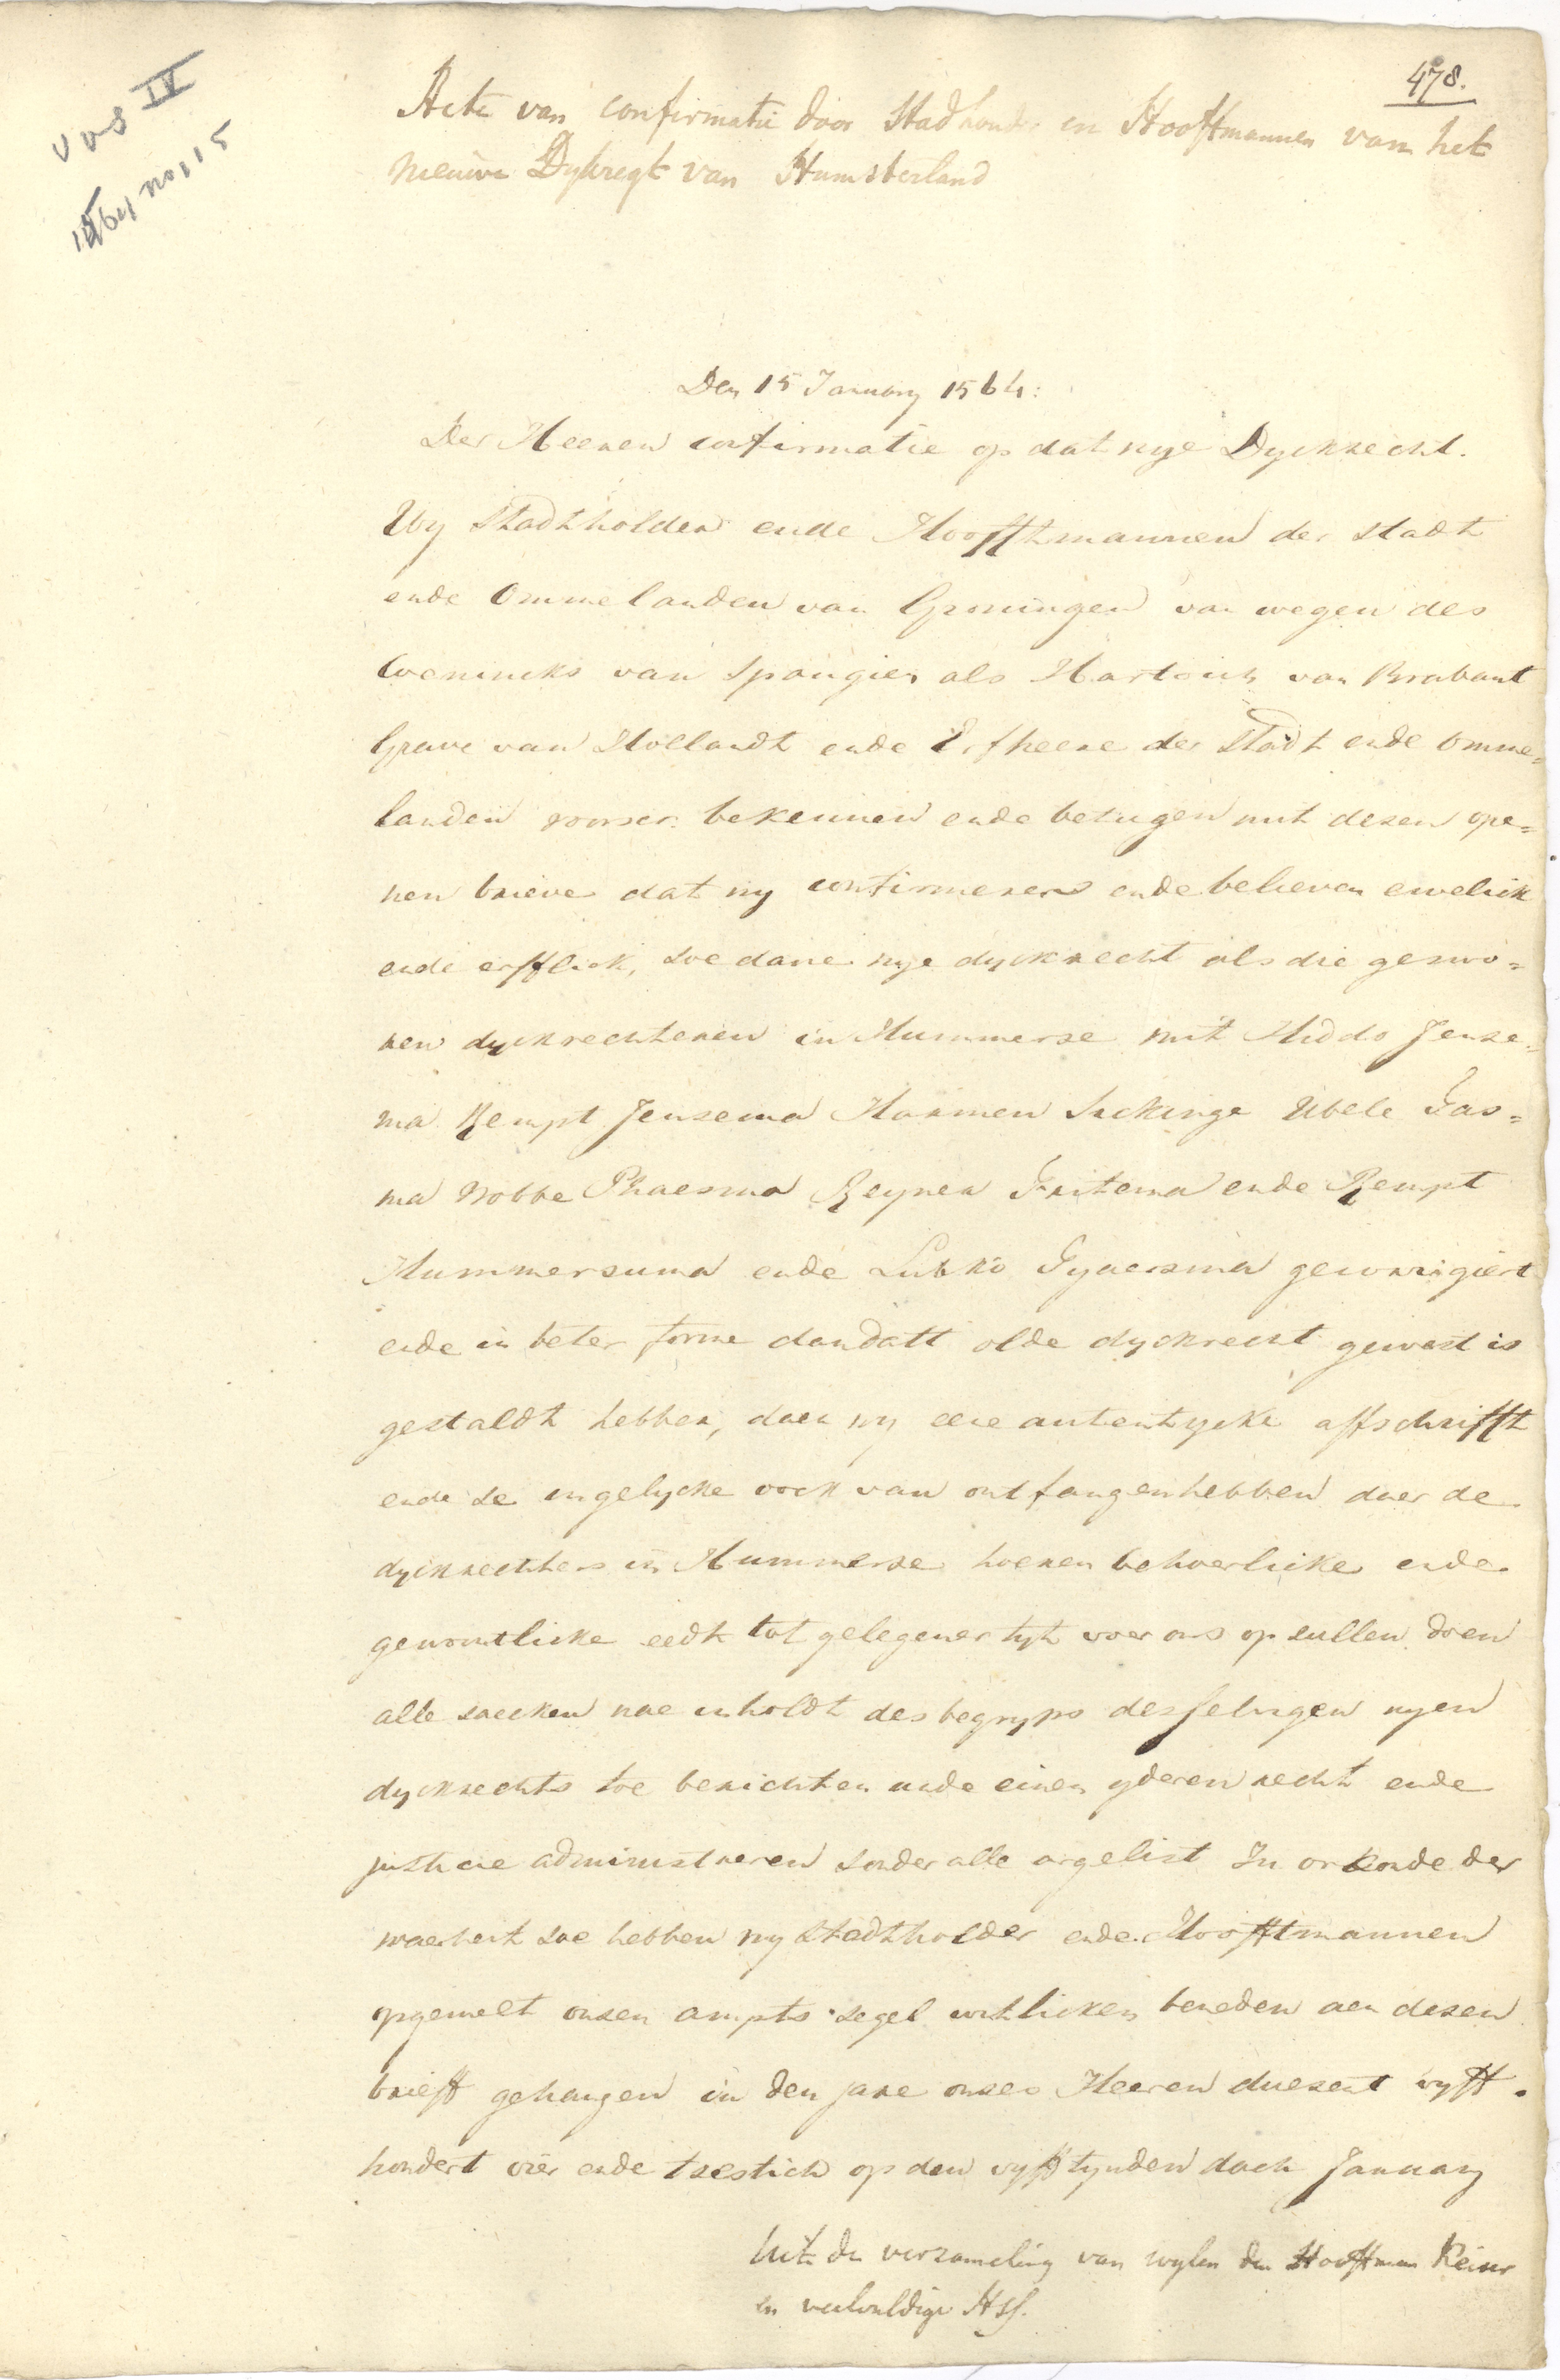 478.
vvs IV
1564 no 115
Acte van confirmatie door Stadhouder en Hooftmannen van het
nieuwe Dykregt van Humsterland
Den 15 January 1564:
Der Heeren confirmatie op dat nye Dyckrecht.
Wy Stadtholder ende Hooftmannen der stadt
ende Ommelanden van Groningen van wegen des
Coenincks van Spangien als Hartoich van Brabant
Grave van Hollandt ende Erfheere der Stadt ende Omme=
landen voorscr. bekennen ende betugen mit desen ope=
nen brieve dat wy confirmeren ende believen ewelick
ende erfflick, soedane nye dyckrecht als die geswo=
ren dyckrechteren in Hummerse mit Hiddo Jense=
ma Rempt Jensema Harmen Sickinge Ubele Gas=
ma Nobbe Phaesma Reyner Fritema ende Rempt
Hummersuma ende Lubko Gyaersma gecorrigiert
ende in beter forme dan datt olde dyckrecht gewest is
gestaldt hebben, daer wy eene autentycke affschrifft
ende se ingelycke oock van ontfangen hebben daer de
dyckrechters in Hummerse hoeren behoerlicke ende
gewontlicke eedt tot gelegener tyt voer ons op sullen doen
alle saecken nae inholdt des begryps desselvigen nyen
dyckrechts toe berichten ende einen yderen recht ende
justicie administreren sonder alle argelist In orkonde der
waerheit soe hebben wy Stadtholder ende Hooftmannen
opgemelt onsen ampts segel witlicken beneden aen desen
brieff gehangen in den jare onses Heeren duesent vyff.
hondert vier ende tsestich op den vyfftynden dach January
Uit de verzameling van wylen den Hooftman Keiser
in veelvuldige HSf.